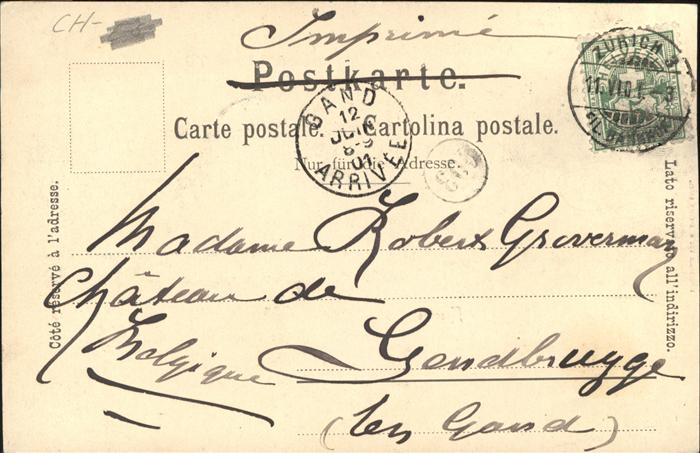 CH-
Imprimé
Postkarte.
Carte postale. Cartolina postale.
Nur für die Adresse.
Côté réservé à l'adresse.
Lato riservato all'indirizzo.
ZÜRICH
11.VI.01.
GAND
12
8-9
01
ARRIVÉE
Madame Robert Groverman
Château de
Belgique Gendbrugge
(lez Gand)